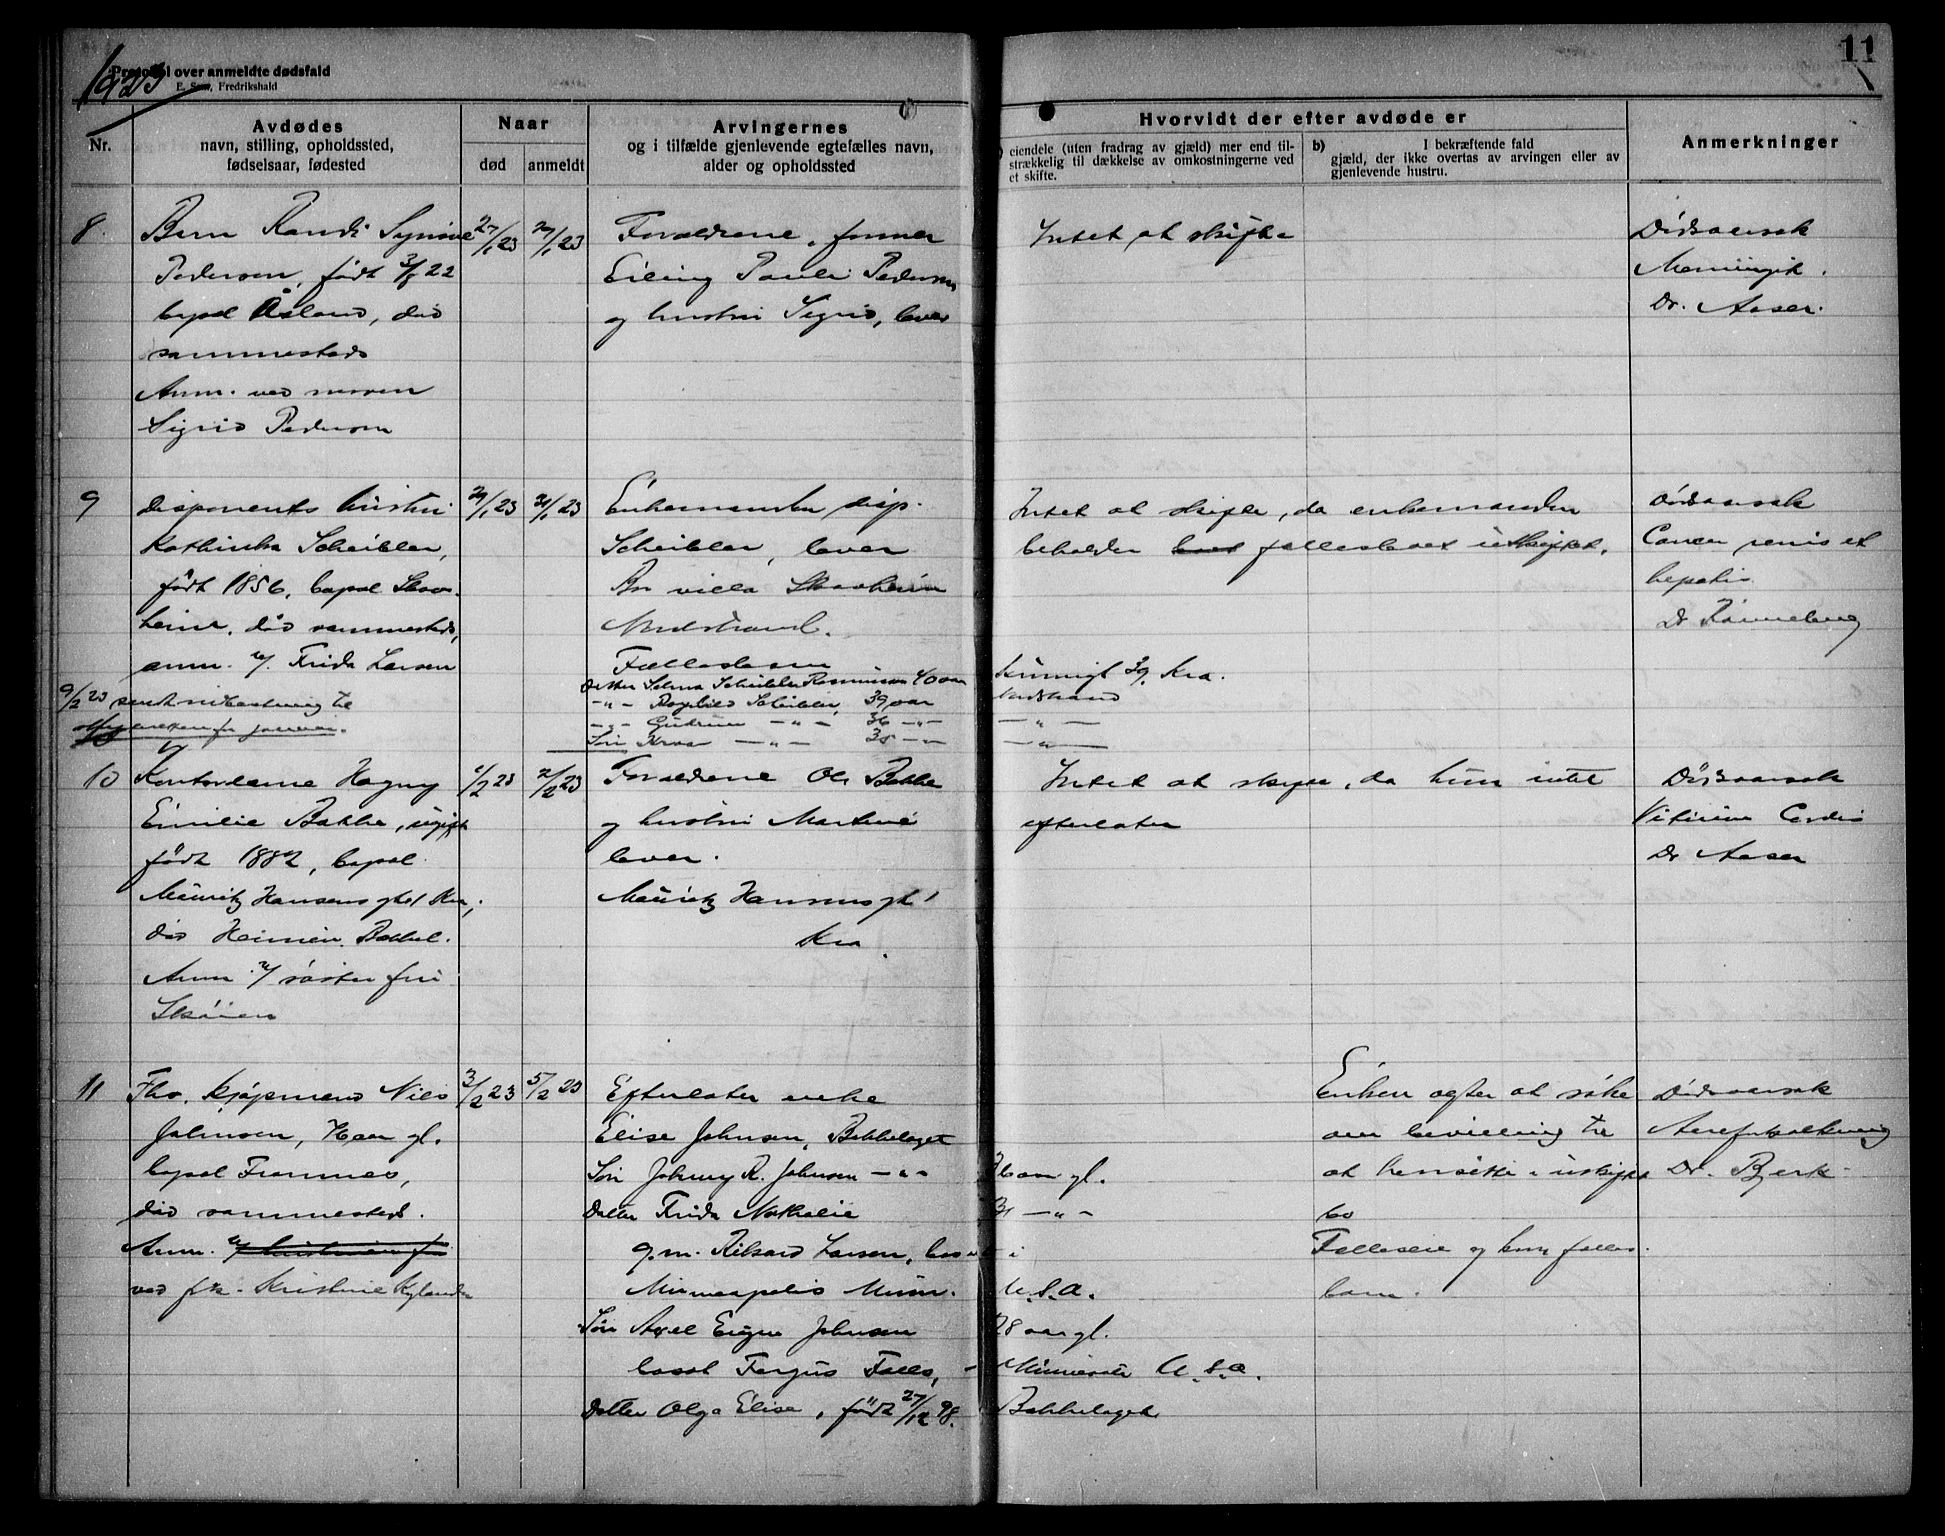 1923
Protokol over anmeldte dødsfald
E. Sem, Fredrikshald
11
Nr.
Avdødes
navn, stilling, opholdssted,
fødselsaar, fødested
Naar
død
anmeldt
Arvingernes
og i tilfælde gjenlevende egtefælles navn,
alder og opholdssted
Hvorvidt der efter avdøde er
eiendele (uten fradrag av gjæld) mer end til-
strækkelig til dækkelse av omkostningerne ved
et skifte.
b) I bekræftende fald
gjæld, der ikke overtas av arvingen eller av
gjenlevende hustru.
Anmerkninger
8.
Barn Randi Synnøve
Pedersen, født 22
bopal Åsland, død
sammesteds
Anm. ved moren
Sigrid Pedersen
27/1 23
29/1 23
Forældrene, former
Erling Pauli Pedersen
og hustru Sigrid, lever
Intet at skifte
Dødsaarsak
Meningit.
Dr. Aaser.
9
Disponents hustru
Kathinka Scheibler,
født 1856, bopal Skov-
heim, død sammesteds,
anm. v/ Frida Larsen
9/2 23 sendt
29/1 23
31/1 23
Enkemanden disp.
Scheibler, lever
Bor villa Skovheim
Nordstrand.
Fællesbarn
Datter Selma Scheibler Rasmussen 40 aar
-"- Ragnhild Scheibler, 39 aar
-"- Gudrun -"- 36 -"-
Søn -"- 35 -"-
39, Kra.
Nordstrand
-"-
-"-
Intet at skifte, da enkemanden
beholder boet fællesboet uskiftet.
Dødsaarsak
Cancer renis et
hepatis
Dr Rønneberg
10
Kontordame Hagny
Emilie Bakke, ugift
født 1882, bopal
Mauritz Hansens gt 1 Kra,
død Heimen. Bakkel.
Anm. v/ søster fru
Skøien
1/2 23
2/2 23
Forældrene Ole Bakke
og hustru Martine
lever.
Mauritz Hansens gt 1
Kra
Intet at skifte, da hun intet
efterlater
Dødsaarsak
Vitium Cordis
Dr Aaser
11
Fhv. kjøpmand Nils
Johnsen, gl.
bopal Framnes,
død sammesteds.
Anm. v/ hustruen fru
ved frk. Kristine Rylander
3/2 23
5/2 23
Efterlater enke
Elise Johnsen, Bekkelaget
Søn Johnny R. Johnsen -"-
Datter Frida Nathalie
g.m. Rikard Larsen, bosat i
Minneapolis Minn. U.S.A.
Søn Axel Eugen Johnsen 28 aar gl.
bosat Fergus Falls, - Minnesota U.S.A.
Datter Olga Elise, født 27/12 98. Bekkelaget
aar gl.
31 -"-
Enken agter at søke
om bevilling til
at hensitte i uskiftet
bo
Fælleseie og kun fælles-
barn.
Dødsaarsak
Aareforkalkning
Dr. Bjerk-